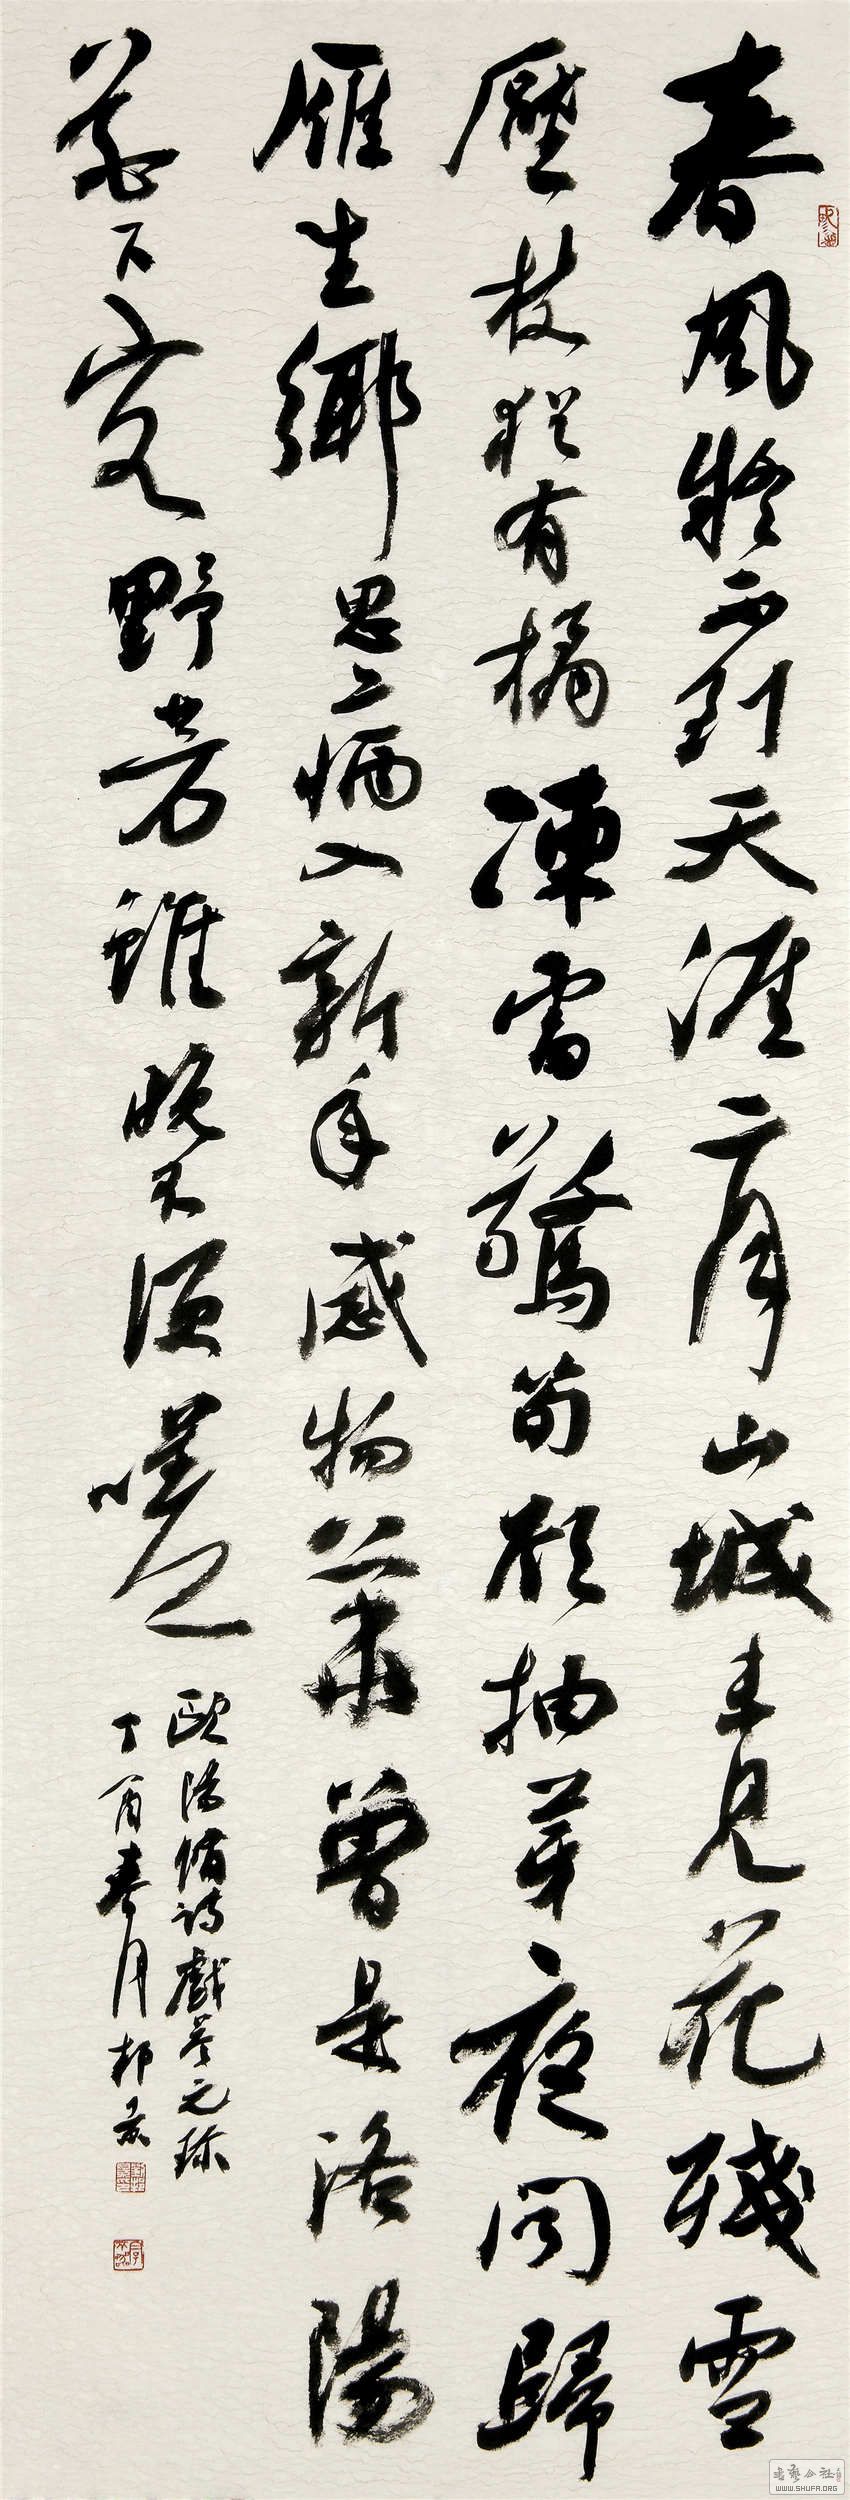 春風疑不到天涯二月山城未見花殘雪
壓枝猶有橘凍雷驚筍欲抽芽夜聞歸
雁生鄉思病入新年感物華曾是洛陽
花下客野芳雖晚不須嗟
歐陽脩詩戲答元珍
丁酉春月
书艺公社
WWW.SHUFA.ORG